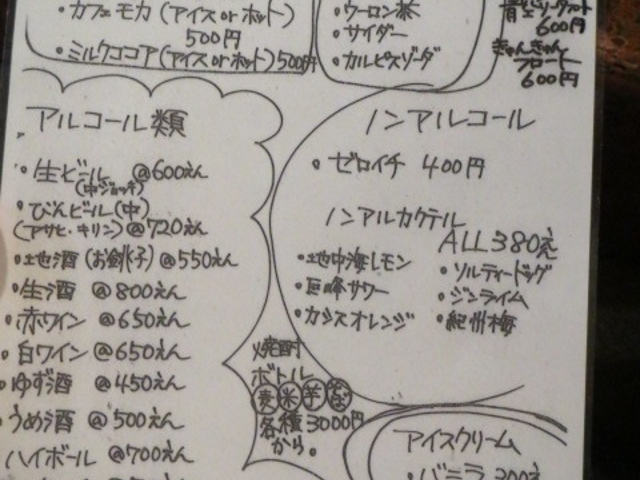 ・カフェモカ（アイスorホット）
500円
・ミルクココア（アイスorホット）500円
・ウーロン茶
・サイダー
・カルピスソーダ
600円
きゃんきゃん
フロート
600円
アルコール類
・生ビール @600えん
（中ジョッキ）
・びんビール（中）
（アサヒ・キリン）@720えん
・地酒（お銚子）@550えん
・生酒 @800えん
・赤ワイン @650えん
・白ワイン @650えん
・ゆず酒 @450えん
・うめ酒 @500えん
ハイボール @700えん
焼酎
ボトル
麦 米 芋
各種3000円
から。
ノンアルコール
・ゼロイチ 400円
ノンアルカクテル
ALL 380え
・地中海レモン
・巨峰サワー
・カシスオレンジ
・ソルティードッグ
・ジンライム
・紀州梅
アイスクリーム
・バニラ 300え